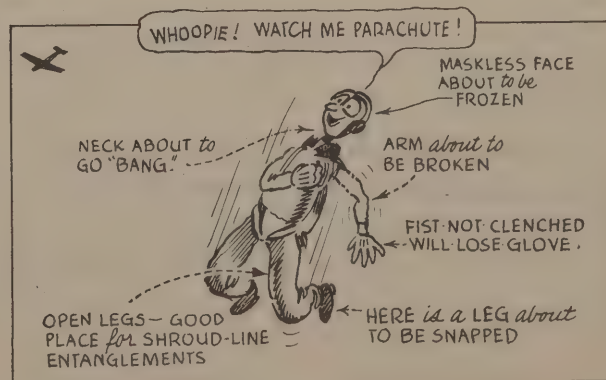 WHOOPIE! WATCH ME PARACHUTE!
MASKLESS FACE
ABOUT to be
FROZEN
NECK ABOUT to
GO "BANG."
ARM about to
BE BROKEN
FIST-NOT-CLENCHED
WILL-LOSE-GLOVE.
OPEN LEGS — GOOD
PLACE for SHROUD-LINE
ENTANGLEMENTS
HERE is a LEG about
TO BE SNAPPED